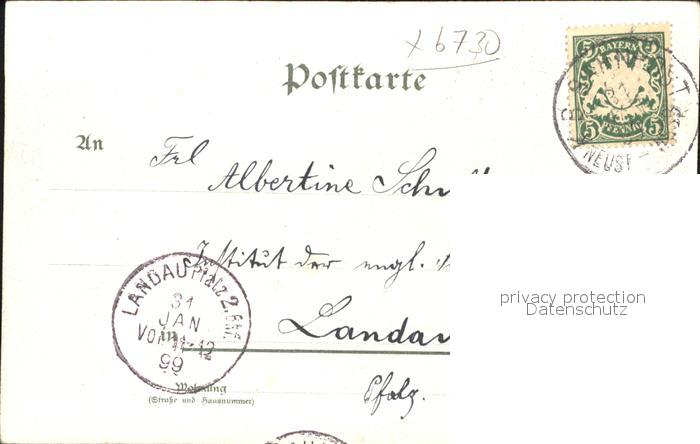 x 6730
Postkarte
5 BAYERN 5
5 PFENNIG 5
BAHNPOST
31
NEUST
An
Frl
Albertine
Institut der engl.
privacy protection
Datenschutz
LANDAU Pfalz 2.
31
JAN
VOR 11-12
99
in
Landau
Wohnung
(Straße und Hausnummer)
Pfalz.